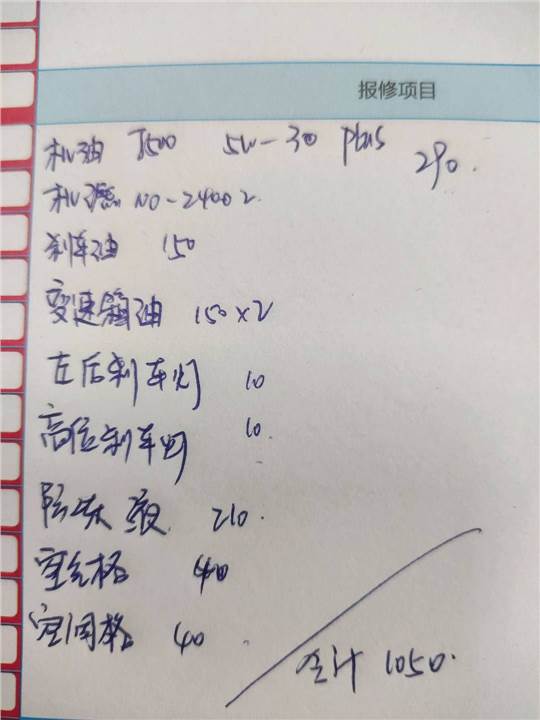 报修项目
机油 8500 5W-30 Plus 290.
机滤 NO-24002
刹车油 150
变速箱油 150×2
左后刹车灯 10
高位刹车灯 10.
防冻液 210.
空气格 40
空调格 40
合计 1050.